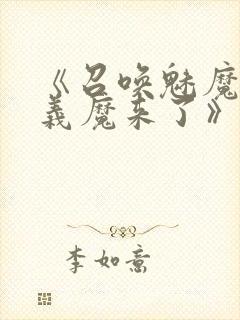 《召唤魅魔
义魔来了》
李如意